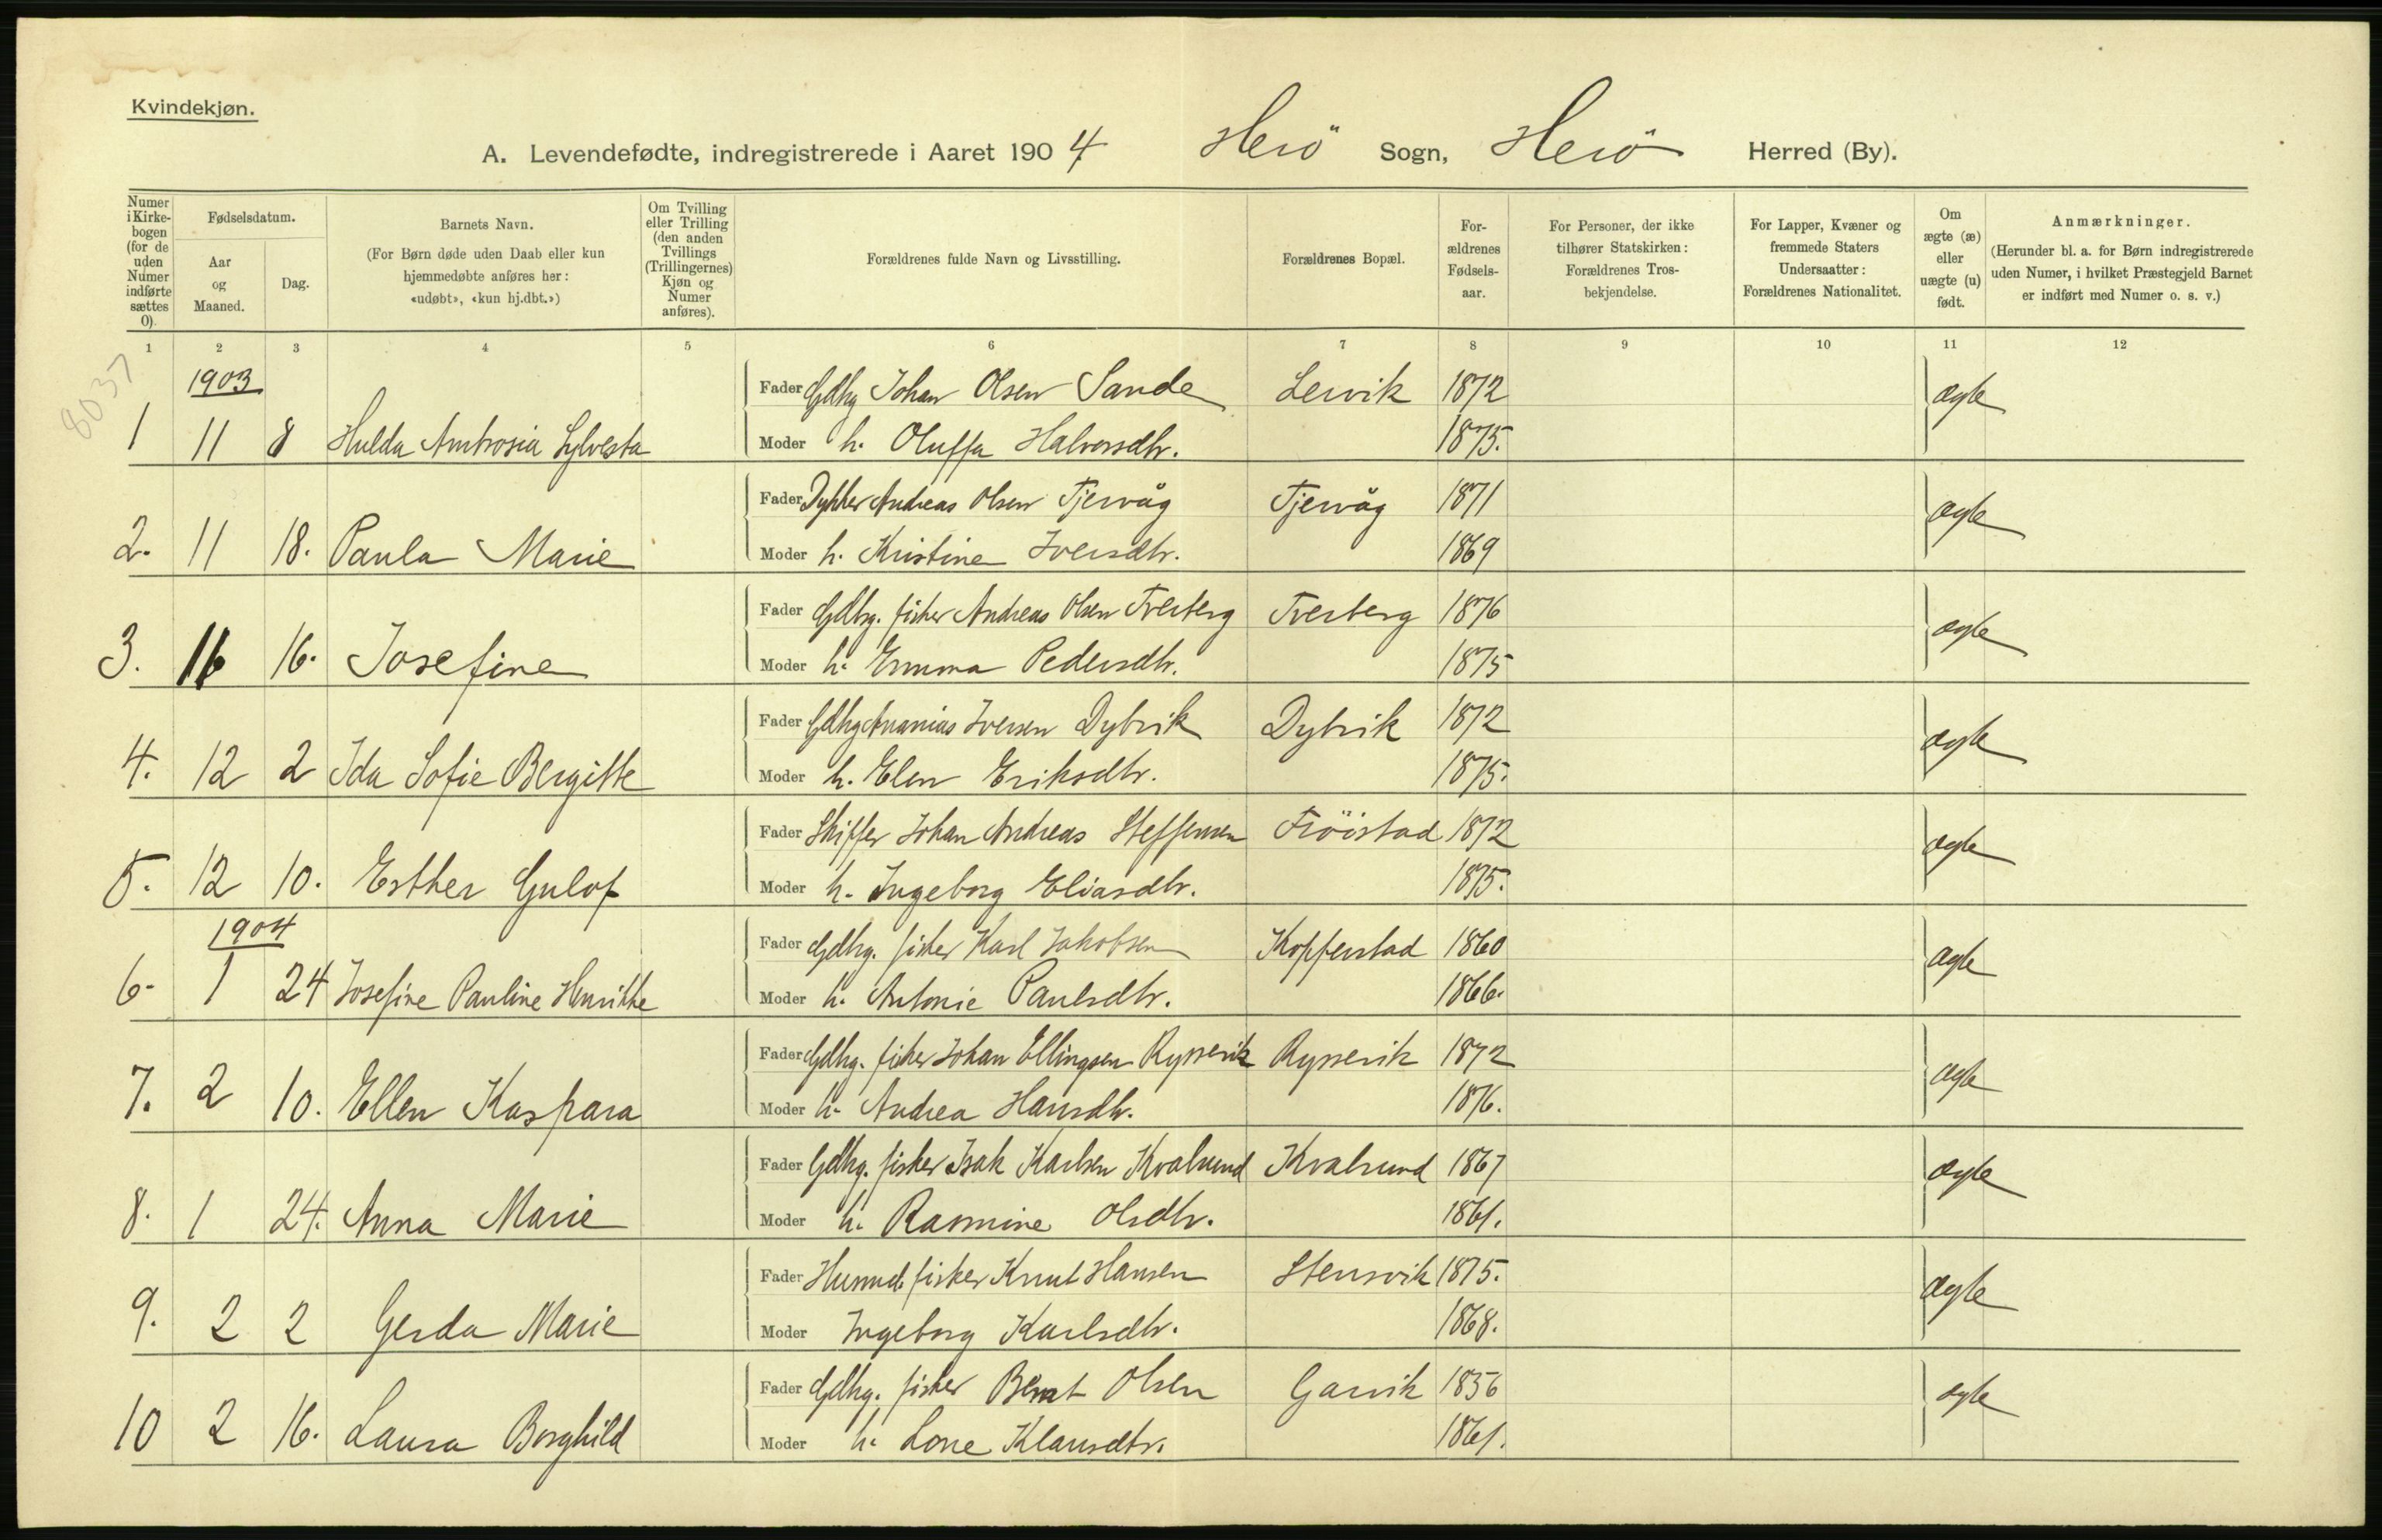 Kvindekjøn.
A. Levendefødte, indregistrerede i Aaret 1904 Herö Sogn, Herö Herred (By).
Numer i Kirke-bogen (for de uden Numer indførte sættes 0).
Fødselsdatum.
Aar og Maaned.
Dag.
Barnets Navn.
(For Børn døde uden Daab eller kun
hjemmedøbte anføres her:
«udøbt», «kun hj.dbt.»)
Om Tvilling eller Trilling (den anden Tvillings (Trillingernes) Kjøn og Numer anføres).
Forældrenes fulde Navn og Livsstilling.
Forældrenes Bopæl.
For-ældrenes Fødsels-aar.
For Personer, der ikke
tilhører Statskirken:
Forældrenes Tros-
bekjendelse.
For Lapper, Kvæner og
fremmede Staters
Undersaatter:
Forældrenes Nationalitet.
Om ægte (æ) eller uægte (u) født.
Anmærkninger.
(Herunder bl. a. for Børn indregistrerede
uden Numer, i hvilket Præstegjeld Barnet
er indført med Numer o. s. v.)
1 2 3 4 5 6 7 8 9 10 11 12
8037
1903
Fader Gdbg Johan Olsen Sande Lervik 1872 ægte
1 11 8 Hulda Ambrosia Sylvesta Moder h. Oluffa Halvorsdtr. 1875.
Fader Dykker Andreas Olsen Tjervåg Tjervåg 1871 ægte
2. 11 18. Paula Marie Moder h. Kristine Iversdtr. 1869
Fader Gdbrg. fisker Andreas Olsen Tverberg Tverberg 1876 ægte
3. 16. Josefine Moder h. Emma Pedersdtr. 1875
Fader Gdbg Ananias Iversen Dybvik Dybvik 1872 ægte
4. 12 2 Ida Sofie Bergitte Moder h. Elen Eriksdtr. 1875.
Fader Skipper Johan Andreas Steffensen Fröistad 1872 ægte
5. 12 10. Esther Gulof Moder h. Ingeborg Eliasdtr. 1875.
1904
Fader Gdbg. fisker Karl Jakobsen Kopperstad 1860 ægte
6. 1 24 Josefine Pauline Henrikke Moder h. Antonie Paulsdtr. 1866.
Fader Gdbg. fisker Johan Ellingsen Rypervik Rypervik 1872 ægte
7. 2 10. Ellen Kaspara Moder h. Andrea Hansdtr. 1876.
Fader Gdbg. fisker Isak Karlsen Kvalsund Kvalsund 1867 ægte
8. 1 24. Anna Marie Moder h. Rasmine Olsdtr. 1861.
Fader Husmd. fisker Knut Hansen Stensvik 1875. ægte
9. 2 2 Gerda Marie Moder Ingeborg Karlsdtr. 1868.
Fader Gdbg. fisker Bernt Olsen Garvik 1856 ægte
10 2 16. Laura Borghild Moder h. Lone Klausdtr. 1861.